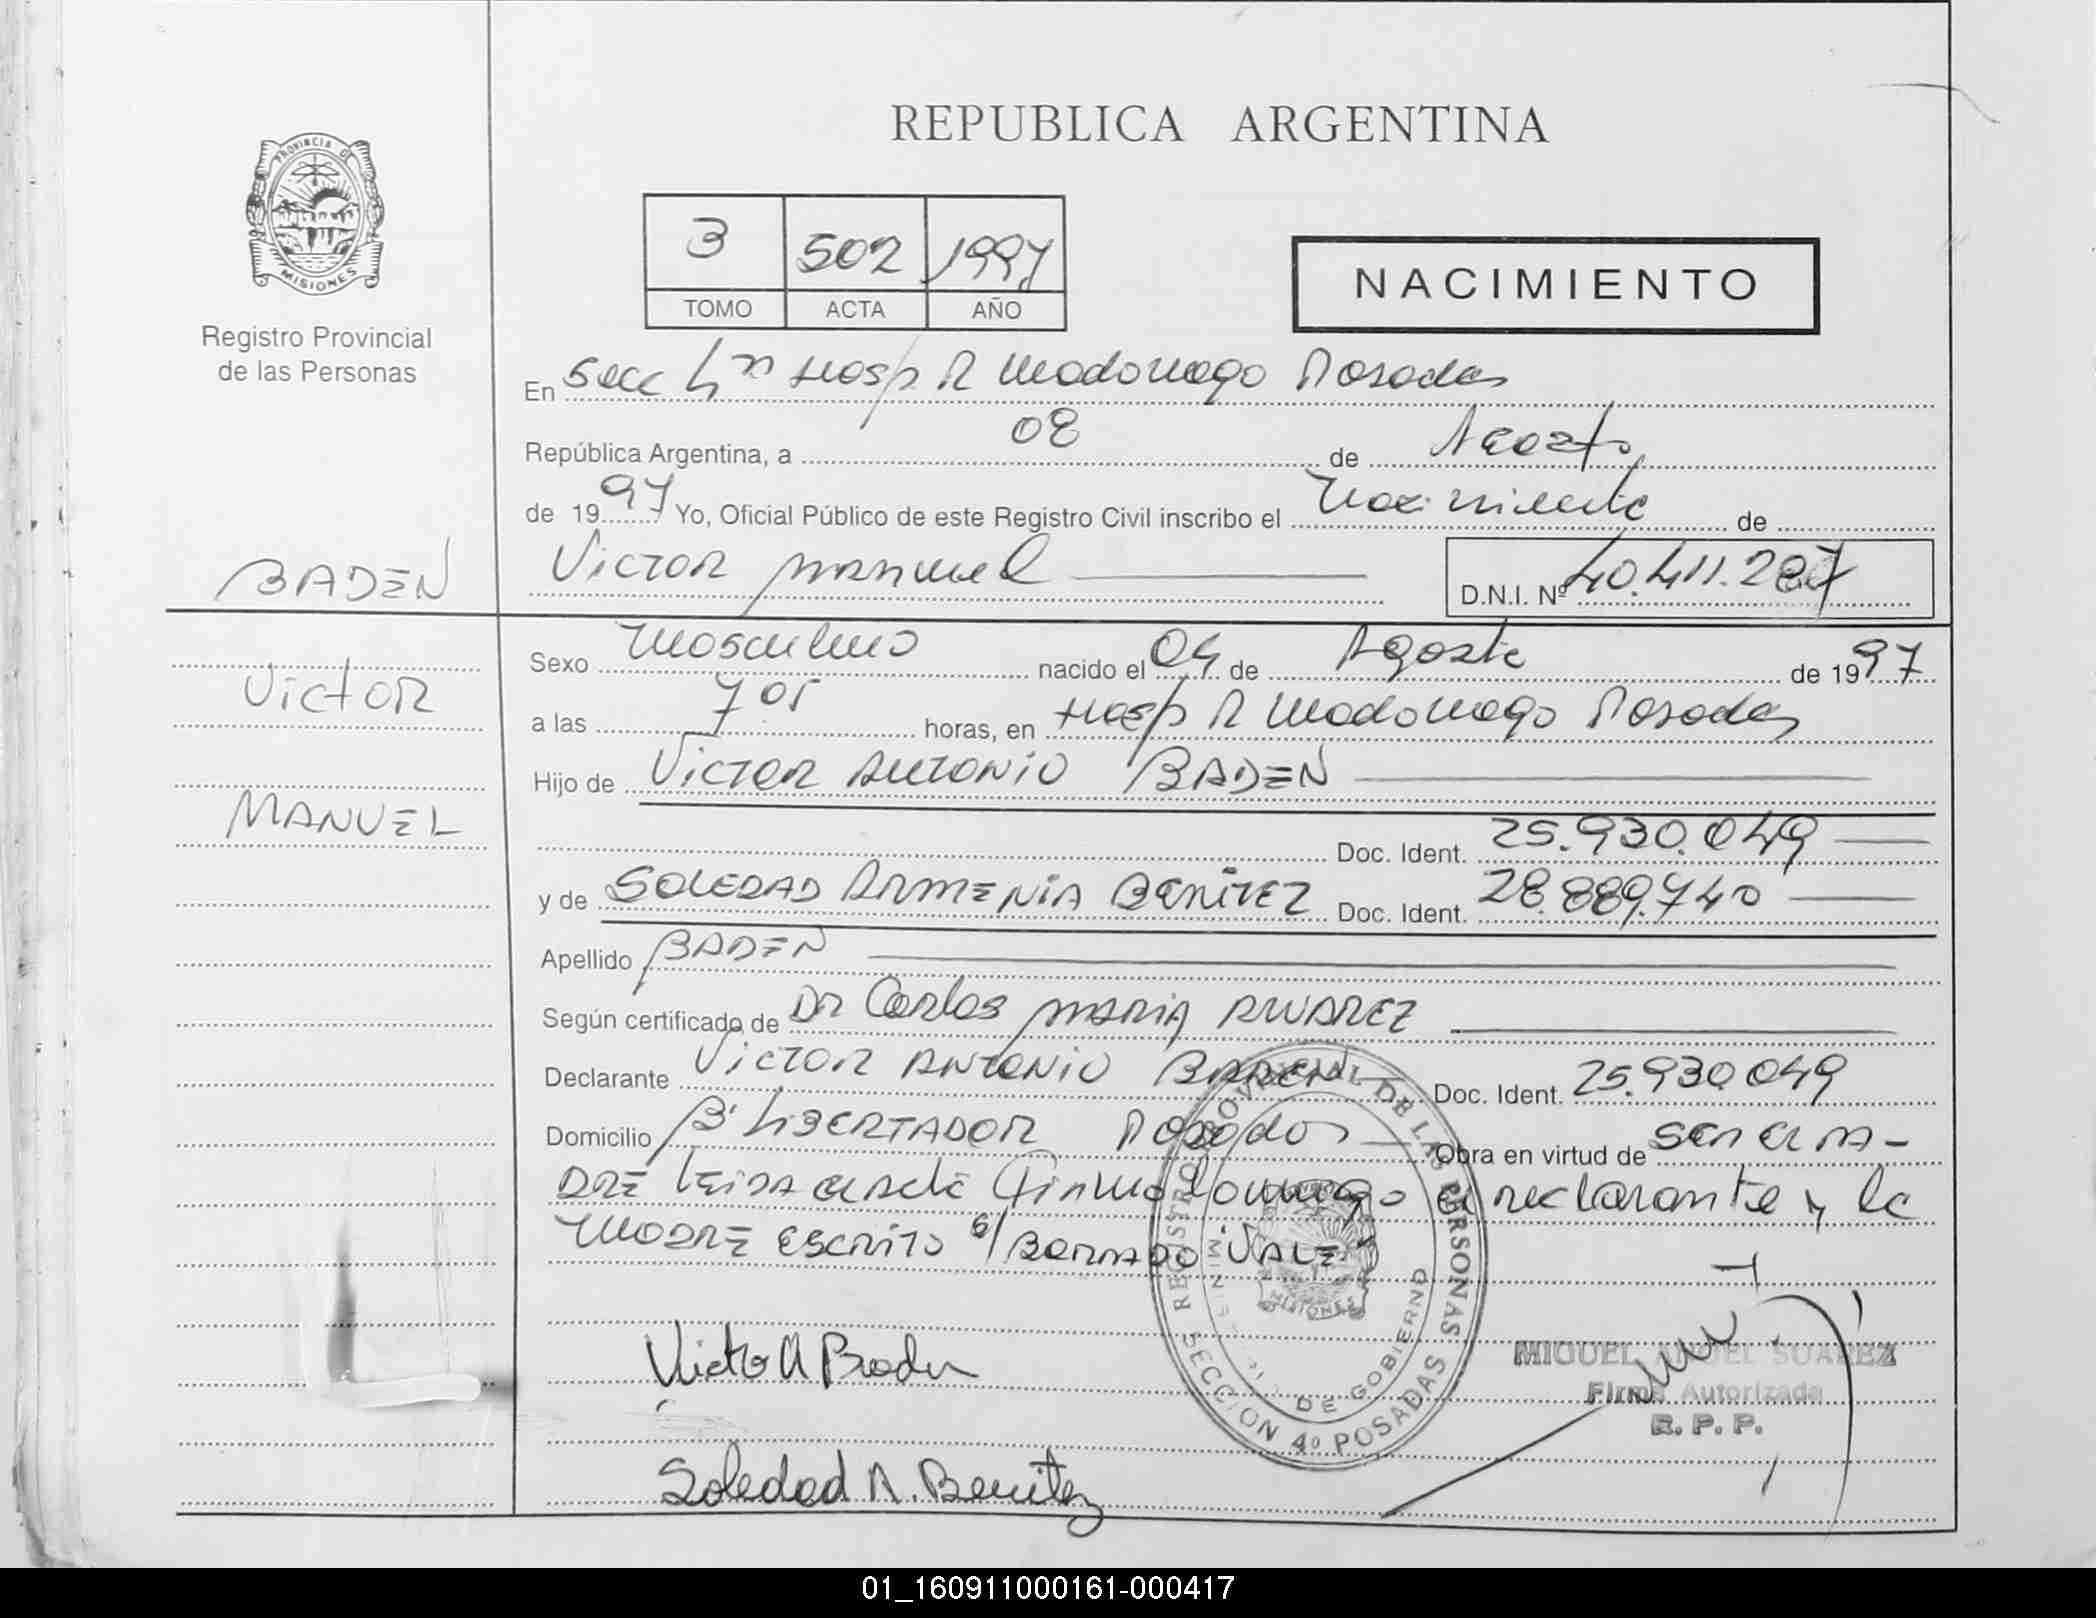 REPUBLICA ARGENTINA
PROVINCIA DE
MISIONES
Registro Provincial
de las Personas
3 502 1997
TOMO ACTA AÑO
NACIMIENTO
En Secc 4ta Hosp R Madariaga Posadas
República Argentina, a 08 de Agosto
de 1997 Yo, Oficial Público de este Registro Civil inscribo el Nacimiento de
Victor Manuel
D.N.I. Nº 40.411.287
BADEN
Victor
MANUEL
Sexo Masculino nacido el 04 de Agosto de 1997
a las 7 05 horas, en Hosp R Madariaga Posadas
Hijo de Victor Antonio BADEN
Doc. Ident. 25.930.049
y de SOLEDAD ARMENIA BENITEZ Doc. Ident. 28.889.740
Apellido BADEN
Según certificado de DR Carlos MARIA ALVAREZ
Declarante Victor ANTONIO BADEN Doc. Ident. 25.930.049
Domicilio Bº LIBERTADOR Posadas Obra en virtud de SER EL PA-
DRE Leida el acta Firma conmigo el declarante y la
MADRE ESCRITO s/ BORRADO "VALE"
REGISTRO PROVINCIAL DE LAS PERSONAS
DE GOBIERNO
MISIONES
SECCION 4º POSADAS
Victor A Baden
Soledad A. Benitez
MIGUEL ANGEL SUAREZ
Firma Autorizada
R. P. P.
01_160911000161-000417